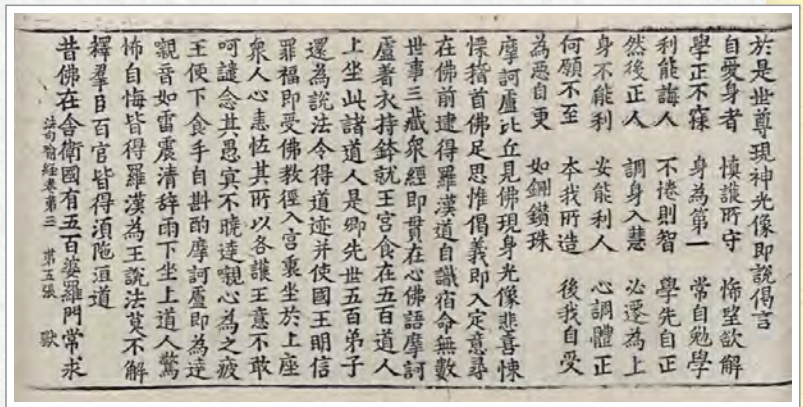 於是世尊現神光像即說偈言
自愛身者 慎護所守 悕望欲解
學正不寐 身為第一 常自勉學
利能誨人 不惓則智 學先自正
然後正人 調身入慧 必遷為上
身不能利 安能利人 心調體正
何願不至 本我所造 後我自受
為惡自更 如鋼鑽珠
摩訶盧比丘見佛現身光像悲喜悚
慄稽首佛足思惟偈義即入定意尋
在佛前逮得羅漢道自識宿命無數
世事三藏衆經即貫在心佛語摩訶
盧著衣持鉢就王宮食在五百道人
上坐此諸道人是卿先世五百弟子
還為說法令得道迹并使國王明信
罪福即受佛教徑入宮裏坐於上座
衆人心恚怪其所以各護王意不敢
呵譴念其愚冥不曉達嚫心為之疲
王便下食手自斟酌摩訶盧即為達
嚫音如雷震清辭雨下坐上道人驚
怖自悔皆得羅漢為王說法莫不解
釋羣臣百官皆得須陁洹道
法句喻經卷第三 第五張 歐
昔佛在舍衛國有五百婆羅門常求